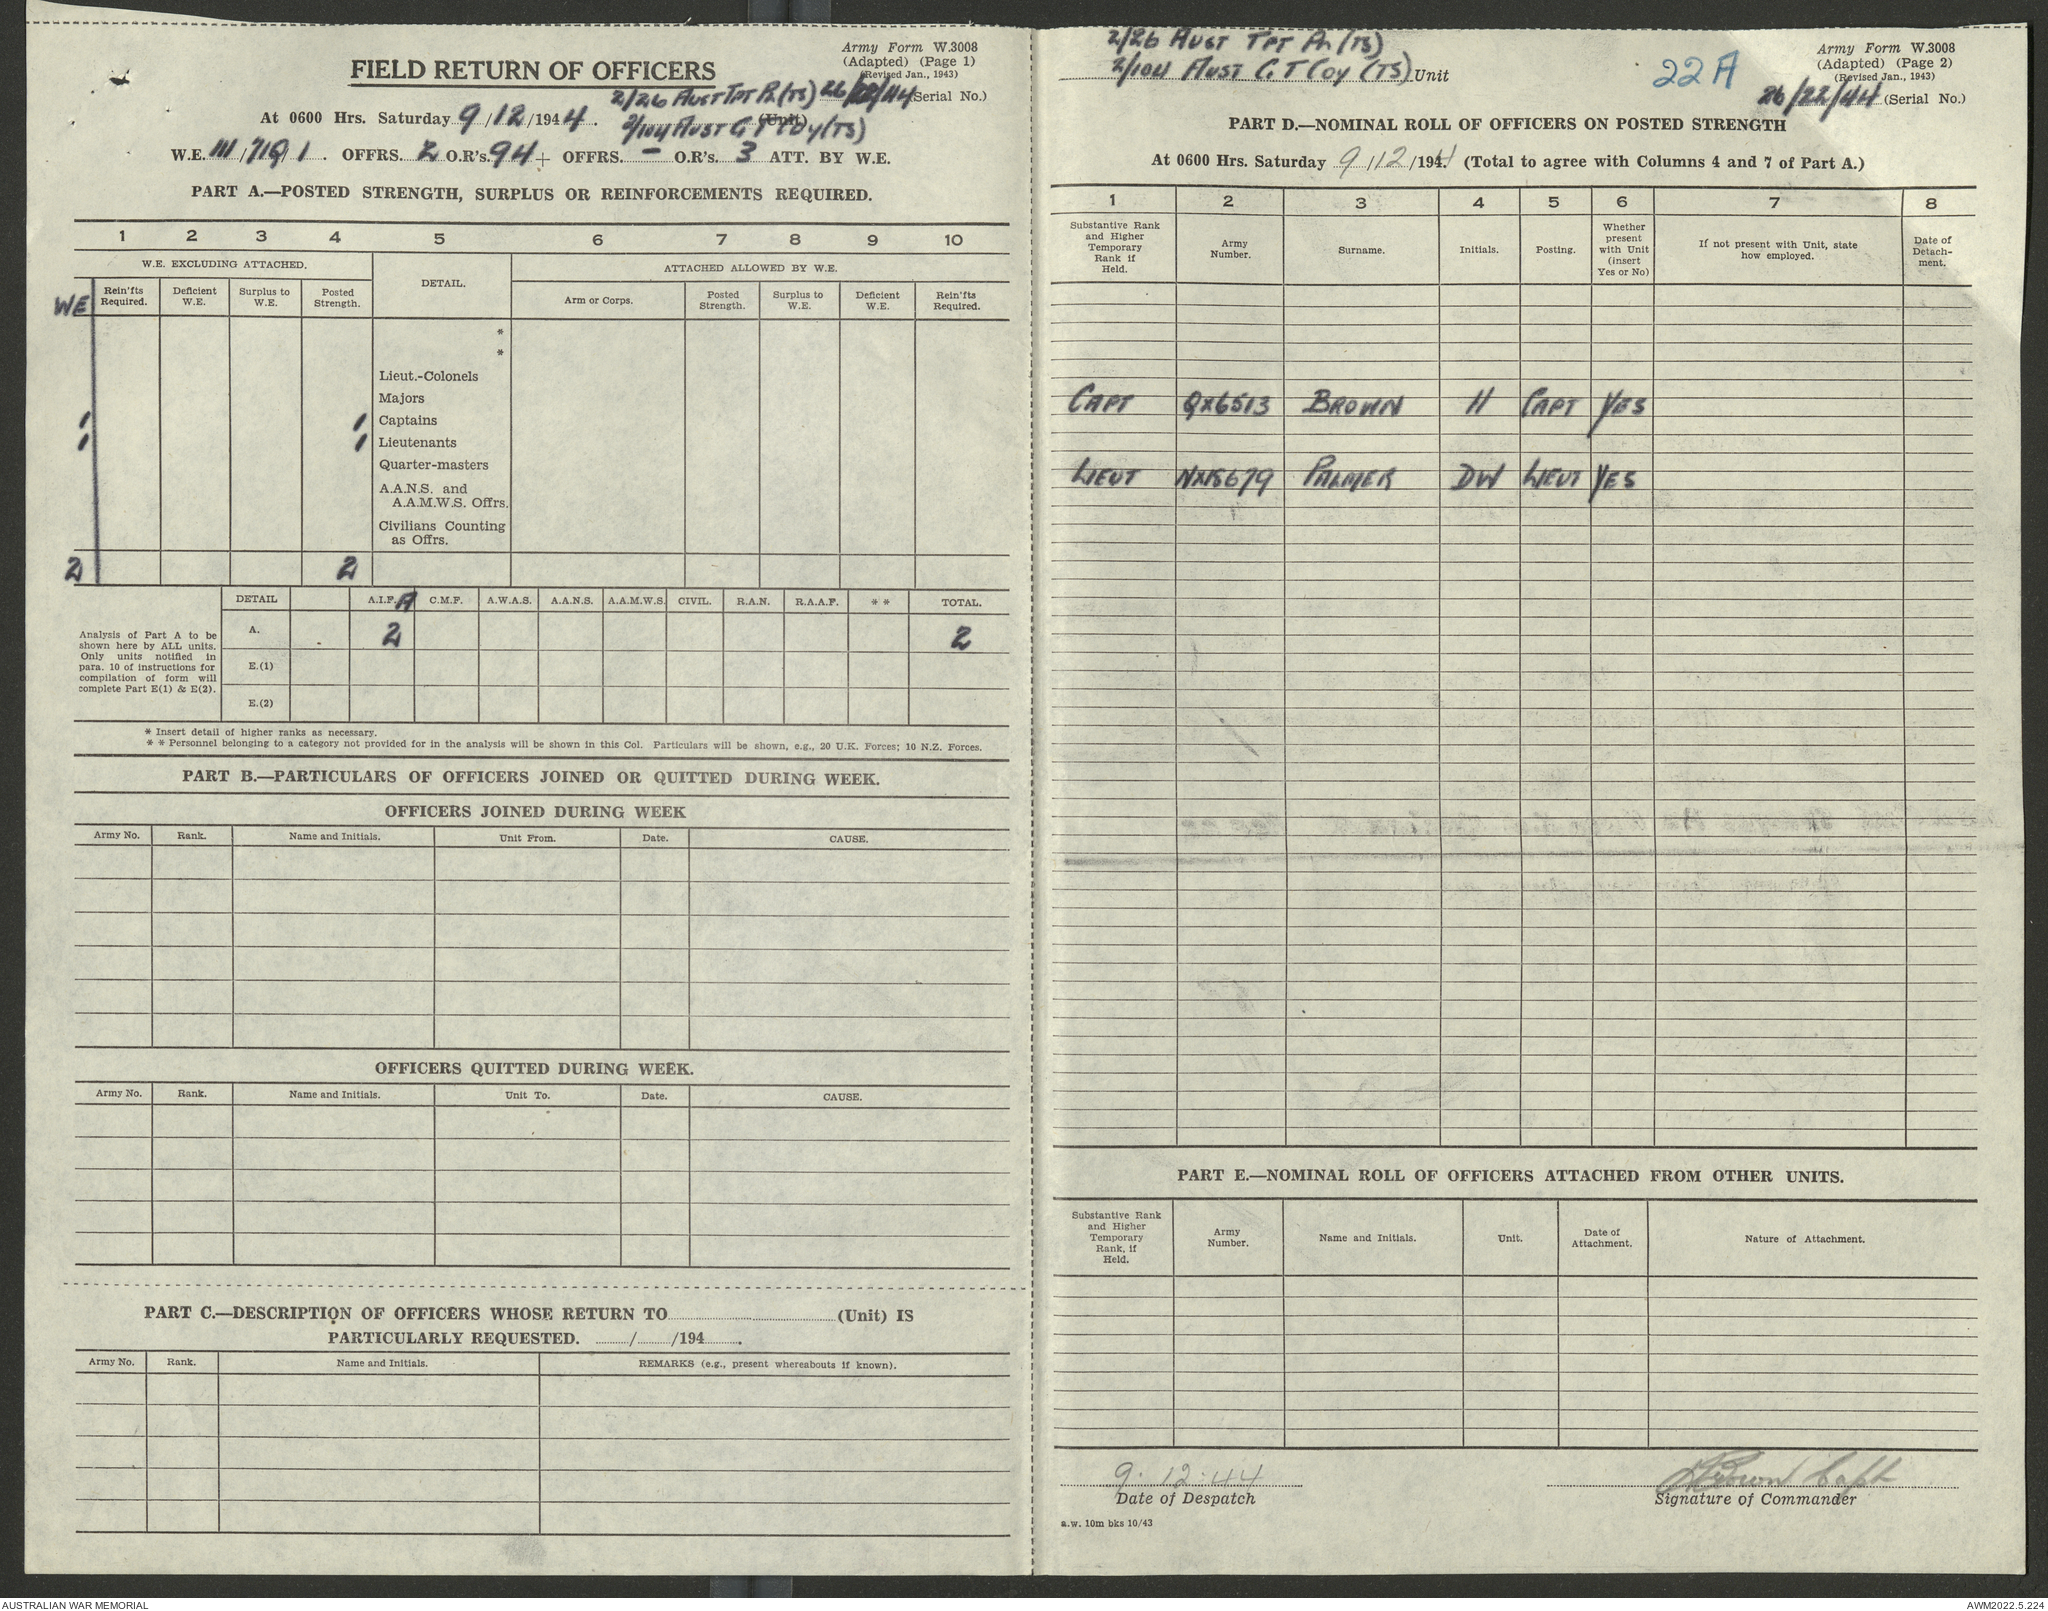 Army Form W.3008
(Adapted) (Page 1)
(Revised Jan., 1943)
FIELD RETURN OF OFFICERS
2/26 AUST TPT Pn (TS) 26/22/44 (Serial No.)
At 0600 Hrs. Saturday 9/12/1944. 2/104 AUST G T COY (TS) (Unit)
W.E. III/719/1. OFFRS. 2 O.R's. 94 + OFFRS. - O.R's. 3 ATT. BY W.E.
PART A.—POSTED STRENGTH, SURPLUS OR REINFORCEMENTS REQUIRED.
1 2 3 4 5 6 7 8 9 10
W.E. EXCLUDING ATTACHED. DETAIL. ATTACHED ALLOWED BY W.E.
WE Rein'fts Required. Deficient W.E. Surplus to W.E. Posted Strength. Arm or Corps. Posted Strength. Surplus to W.E. Deficient W.E. Rein'fts Required.
*
*
Lieut.-Colonels
Majors
1 1 Captains
1 1 Lieutenants
Quarter-masters
A.A.N.S. and
A.A.M.W.S. Offrs.
Civilians Counting
as Offrs.
2 2
DETAIL A.I.F. A C.M.F. A.W.A.S. A.A.N.S. A.A.M.W.S. CIVIL. R.A.N. R.A.A.F. * * TOTAL.
A. 2 2
E.(1)
E.(2)
Analysis of Part A to be
shown here by ALL units.
Only units notified in
para. 10 of instructions for
compilation of form will
complete Part E(1) & E(2).
* Insert detail of higher ranks as necessary.
* * Personnel belonging to a category not provided for in the analysis will be shown in this Col. Particulars will be shown, e.g., 20 U.K. Forces; 10 N.Z. Forces.
PART B.—PARTICULARS OF OFFICERS JOINED OR QUITTED DURING WEEK.
OFFICERS JOINED DURING WEEK
Army No. Rank. Name and Initials. Unit From. Date. CAUSE.
OFFICERS QUITTED DURING WEEK.
Army No. Rank. Name and Initials. Unit To. Date. CAUSE.
PART C.—DESCRIPTION OF OFFICERS WHOSE RETURN TO (Unit) IS
PARTICULARLY REQUESTED. / /194 .
Army No. Rank. Name and Initials. REMARKS (e.g., present whereabouts if known).
2/26 AUST TPT Pn (TS)
2/104 AUST G T COY (TS) Unit
22A
Army Form W.3008
(Adapted) (Page 2)
(Revised Jan., 1943)
26/22/44 (Serial No.)
PART D.—NOMINAL ROLL OF OFFICERS ON POSTED STRENGTH
At 0600 Hrs. Saturday 9/12/1944. (Total to agree with Columns 4 and 7 of Part A.)
1 2 3 4 5 6 7 8
Substantive Rank and Higher Temporary Rank if Held. Army Number. Surname. Initials. Posting. Whether present with Unit (insert Yes or No) If not present with Unit, state how employed. Date of Detach-ment.
CAPT QX6513 BROWN H CAPT YES
LIEUT NX15679 PALMER DW LIEUT YES
PART E.—NOMINAL ROLL OF OFFICERS ATTACHED FROM OTHER UNITS.
Substantive Rank and Higher Temporary Rank, if Held. Army Number. Name and Initials. Unit. Date of Attachment. Nature of Attachment.
9.12.44
Date of Despatch
H Brown Capt
Signature of Commander
a.w. 10m bks 10/43
AUSTRALIAN WAR MEMORIAL
AWM2022.5.224